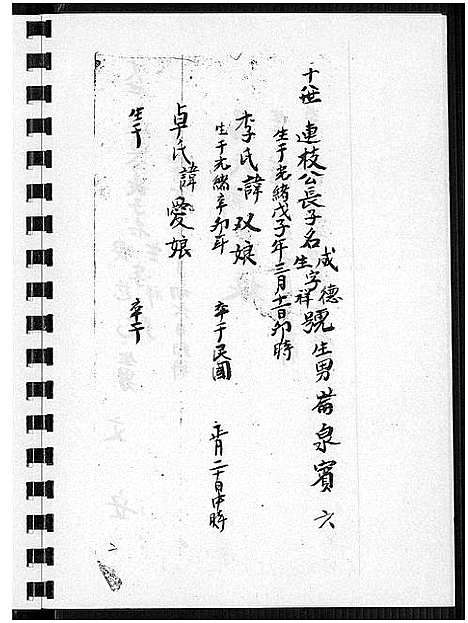 十世 連枝公長子名咸生字德祥號 生男 泉賓六
生于光緒戊子年三月十一日卯時
李氏諱双娘
生于光緒辛卯年 卒于民國 正月二十日申時
卓氏諱愛娘
生于 卒于